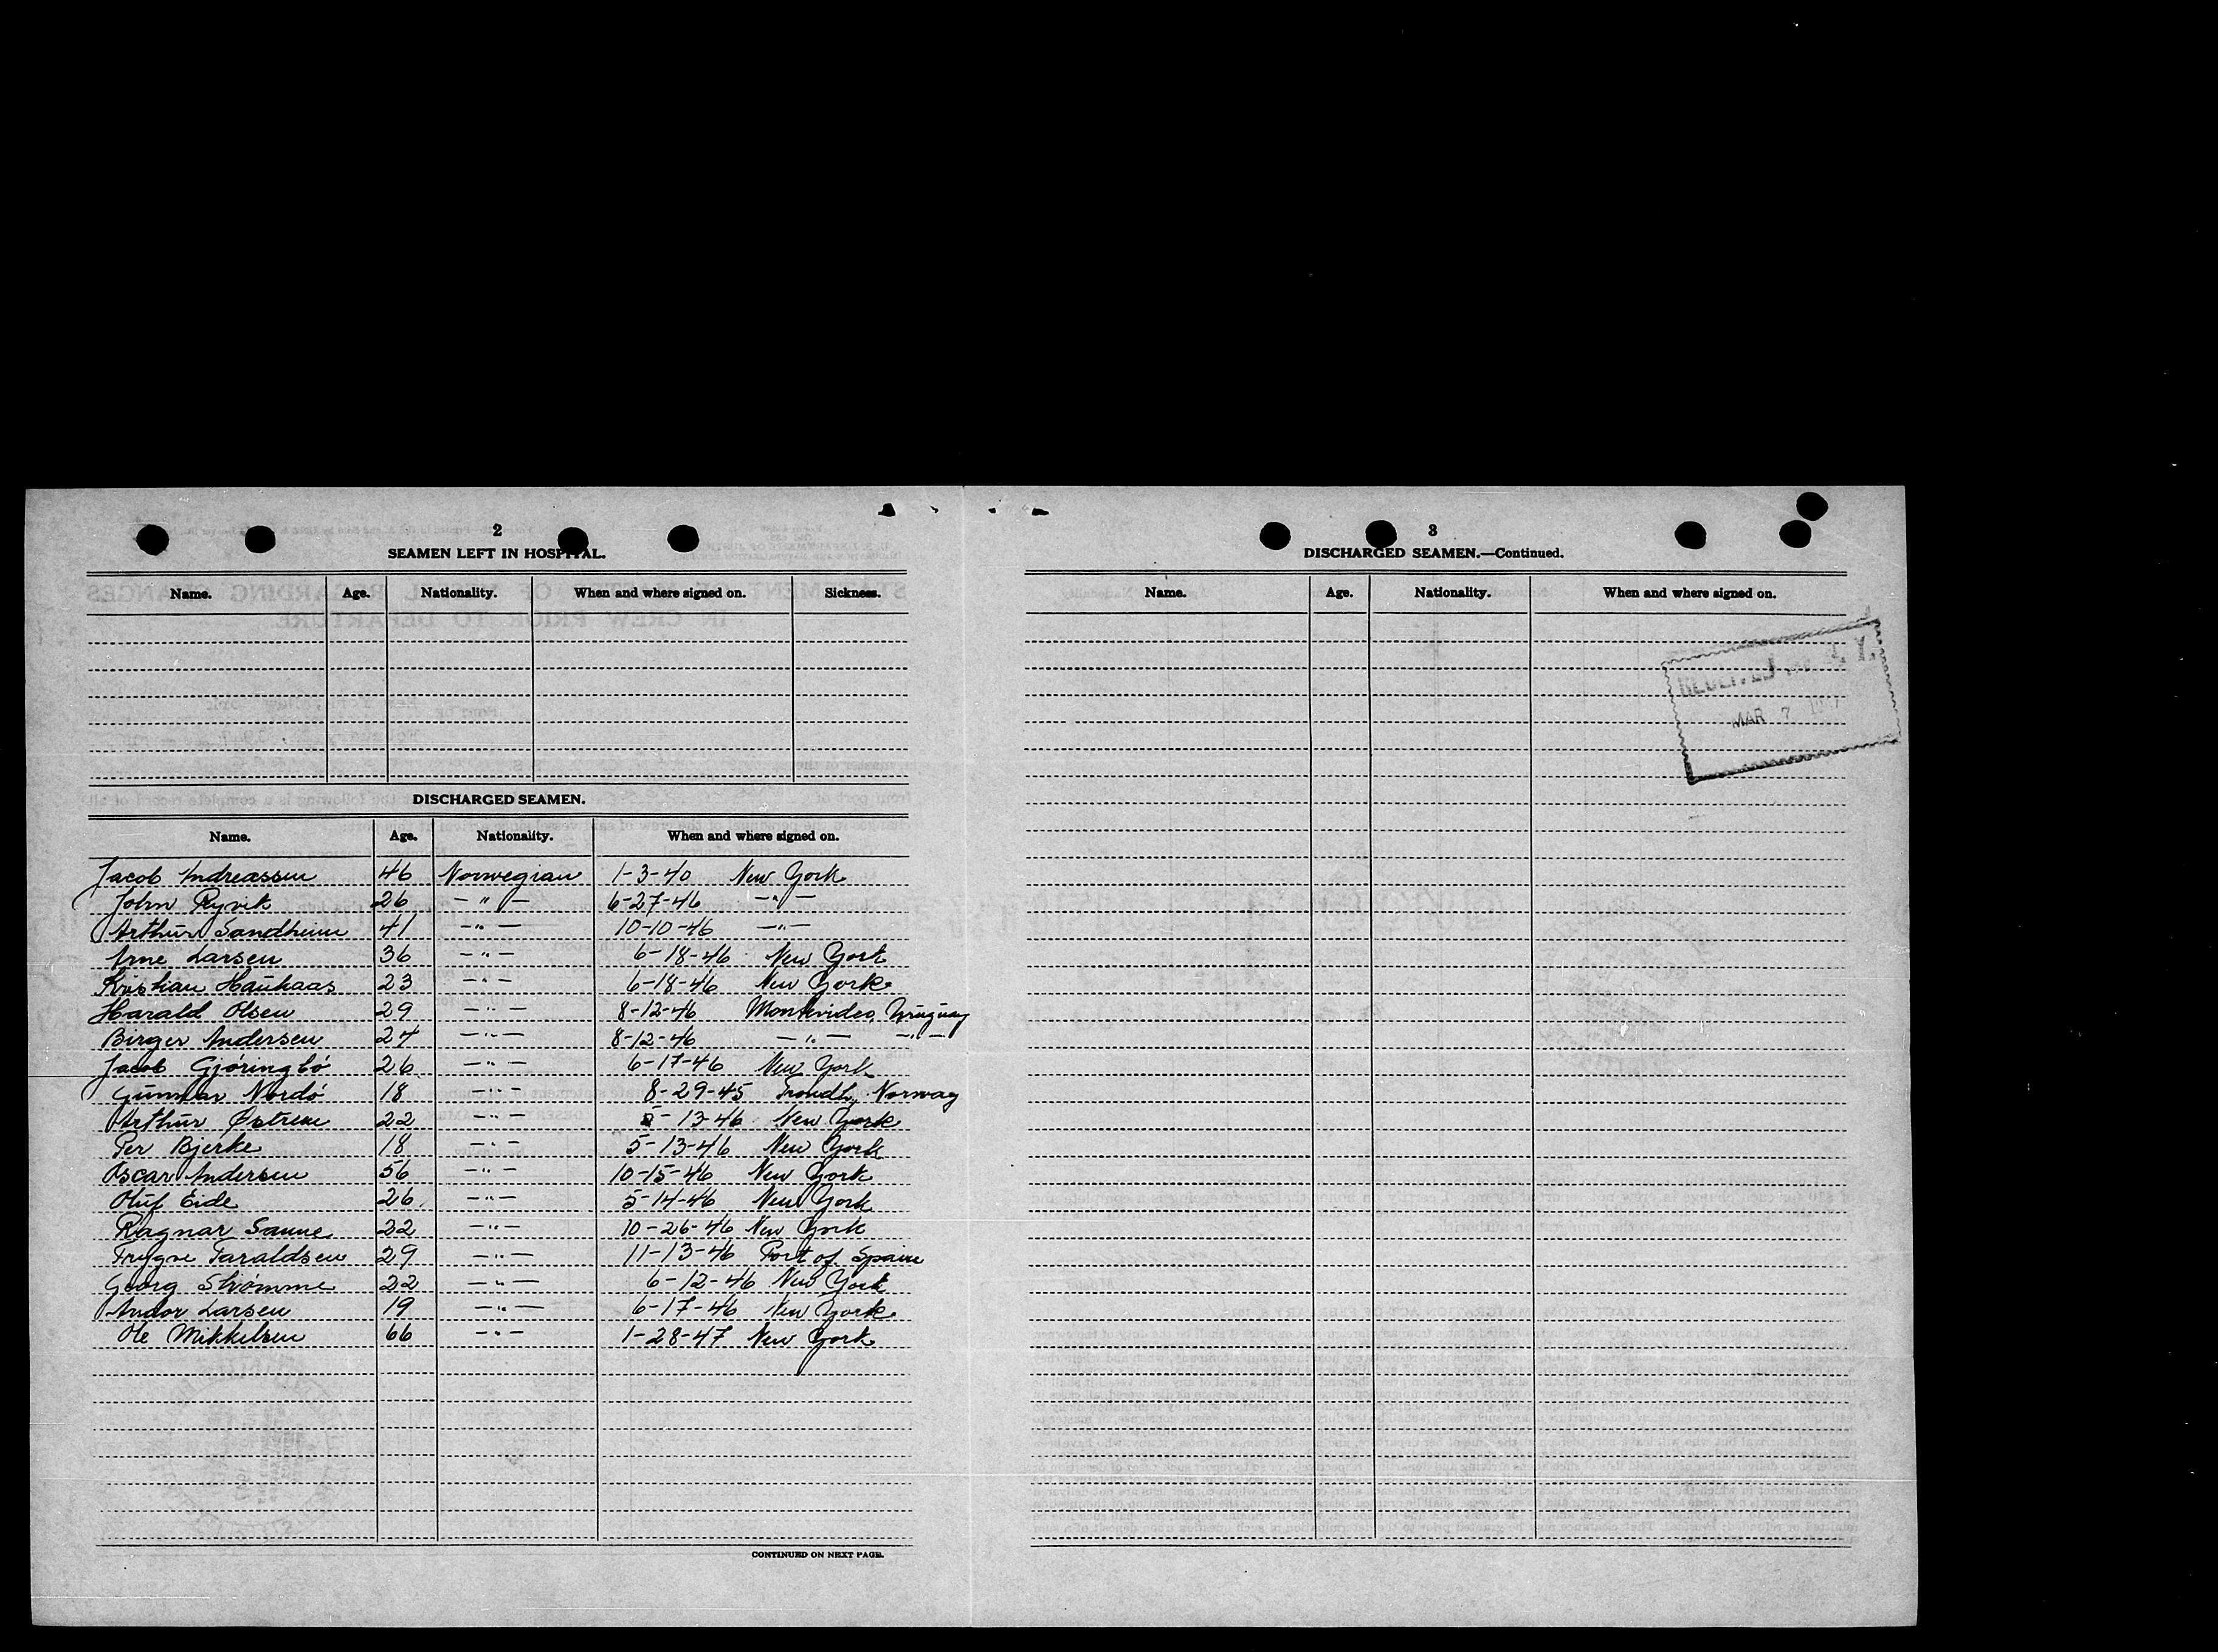 2
SEAMEN LEFT IN HOSPITAL.
Name. Age. Nationality. When and where signed on. Sickness.
DISCHARGED SEAMEN.
Name. Age. Nationality. When and where signed on.
Jacob Andreassen 46 Norwegian 1-3-40 New York
John Ryvik 26 -"- 6-27-46 -"-
Arthur Sandheim 41 -"- 10-10-46 -"-
Arne Larsen 36 -"- 6-18-46 New York
Kristian Hauhaas 23 -"- 6-18-46 New York
Harald Olsen 29 -"- 8-12-46 Montevideo, Uruguay
Birger Andersen 24 -"- 8-12-46 -"- -"-
Jacob Gjøringbø 26 -"- 6-17-46 New York
Gunnar Nordø 18 -"- 8-29-45 Trondh, Norway
Arthur Østrem 22 -"- 5-13-46 New York
Per Bjerke 18 -"- 5-13-46 New York
Oscar Andersen 56 -"- 10-15-46 New York
Oluf Eide 26 -"- 5-14-46 New York
Ragnar Sanne 22 -"- 10-26-46 New York
Trygve Taraldsen 29 -"- 11-13-46 Port of Spain
Georg Strømme 22 -"- 6-12-46 New York
Andor Larsen 19 -"- 6-17-46 New York
Ole Mikkelsen 66 -"- 1-28-47 New York
CONTINUED ON NEXT PAGE.
3
DISCHARGED SEAMEN.—Continued.
Name. Age. Nationality. When and where signed on.
RECEIVED
MAR 7